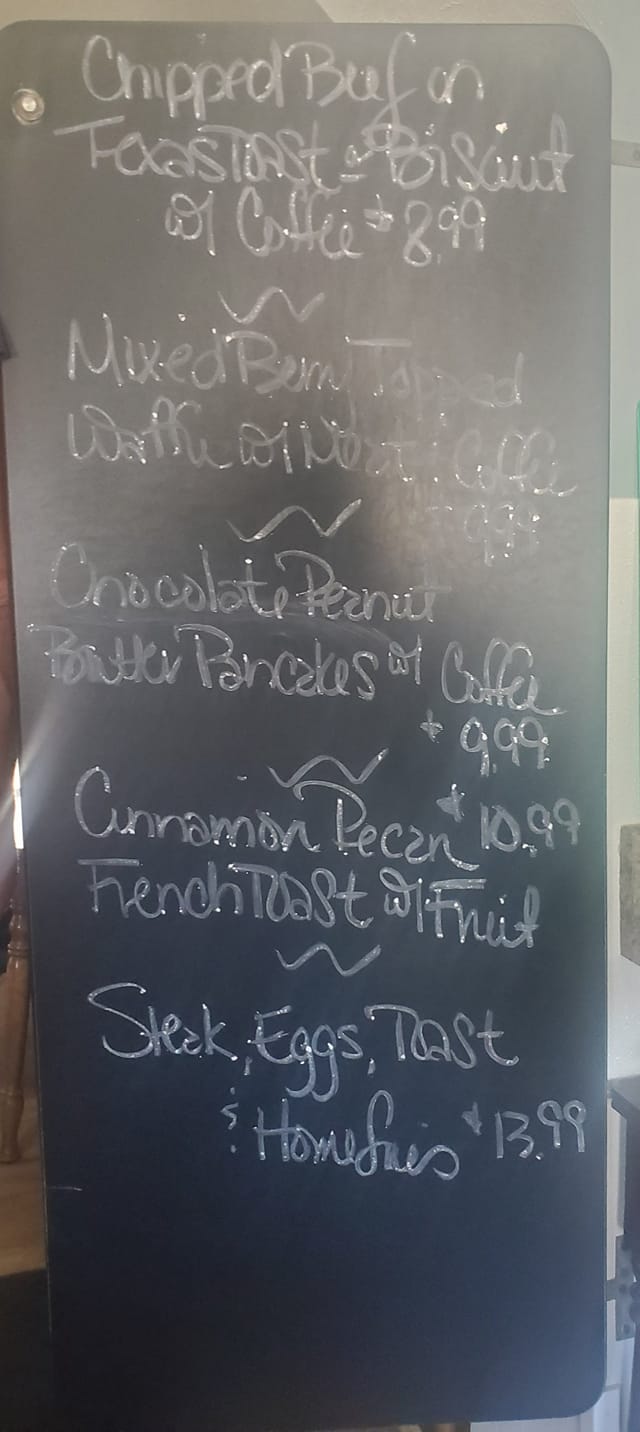 Chipped Beef on
Toast or Biscuit
w/ Coffee $8.99
Mixed Berry Topped
Waffle w/ Meat & Coffee
$9.99
Chocolate Peanut
Butter Pancakes w/ Coffee
$9.99
Cinnamon Pecan $10.99
French Toast w/ Fruit
Steak, Eggs, Toast
& Homefries $13.99